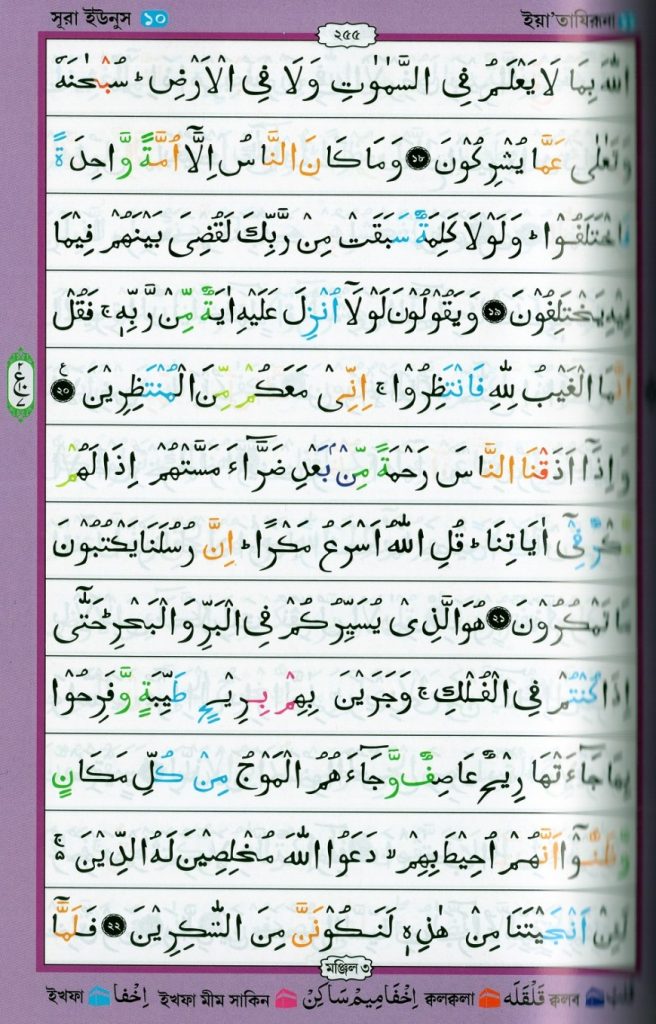 সূরা ইউনুস ১০ ইয়া'তাযিরূনা
২৫৫
اللّٰهَ بِمَا لَا يَعْلَمُ فِى السَّمٰوٰتِ وَلَا فِى الْاَرْضِ ؕ سُبْحٰنَهٗ
وَتَعٰلٰى عَمَّا يُشْرِكُوْنَ ۝۱۸ وَمَا كَانَ النَّاسُ اِلَّاۤ اُمَّةً وَّاحِدَةً
فَاخْتَلَفُوْا ؕ وَلَوْلَا كَلِمَةٌ سَبَقَتْ مِنْ رَّبِّكَ لَقُضِىَ بَيْنَهُمْ فِيْمَا
فِيْهِ يَخْتَلِفُوْنَ ۝۱۹ وَيَقُوْلُوْنَ لَوْلَاۤ اُنْزِلَ عَلَيْهِ اٰيَةٌ مِّنْ رَّبِّهٖ ۚ فَقُلْ
اِنَّمَا الْغَيْبُ لِلّٰهِ فَانْتَظِرُوْا ۚ اِنِّىْ مَعَكُمْ مِّنَ الْمُنْتَظِرِيْنَ ۝۲۰
وَاِذَاۤ اَذَقْنَا النَّاسَ رَحْمَةً مِّنْۢ بَعْدِ ضَرَّآءَ مَسَّتْهُمْ اِذَا لَهُمْ
مَّكْرٌ فِىْۤ اٰيَاتِنَا ؕ قُلِ اللّٰهُ اَسْرَعُ مَكْرًا ؕ اِنَّ رُسُلَنَا يَكْتُبُوْنَ
مَا تَمْكُرُوْنَ ۝۲۱ هُوَ الَّذِىْ يُسَيِّرُكُمْ فِى الْبَرِّ وَالْبَحْرِ ؕ حَتّٰۤى
اِذَا كُنْتُمْ فِى الْفُلْكِ ۚ وَجَرَيْنَ بِهِمْ بِرِيْحٍ طَيِّبَةٍ وَّفَرِحُوْا
بِهَا جَآءَتْهَا رِيْحٌ عَاصِفٌ وَّجَآءَهُمُ الْمَوْجُ مِنْ كُلِّ مَكَانٍ
وَّظَنُّوْۤا اَنَّهُمْ اُحِيْطَ بِهِمْ ۙ دَعَوُا اللّٰهَ مُخْلِصِيْنَ لَهُ الدِّيْنَ ۚ
لَئِنْ اَنْجَيْتَنَا مِنْ هٰذِهٖ لَنَكُوْنَنَّ مِنَ الشّٰكِرِيْنَ ۝۲۲ فَلَمَّاۤ
মঞ্জিল ৩
ইখফা اِخْفَا ইখফা মীম সাকিন اِخْفَا مِيْم سَاكِنْ ক্বলক্বলা قَلْقَلَه ক্বলব